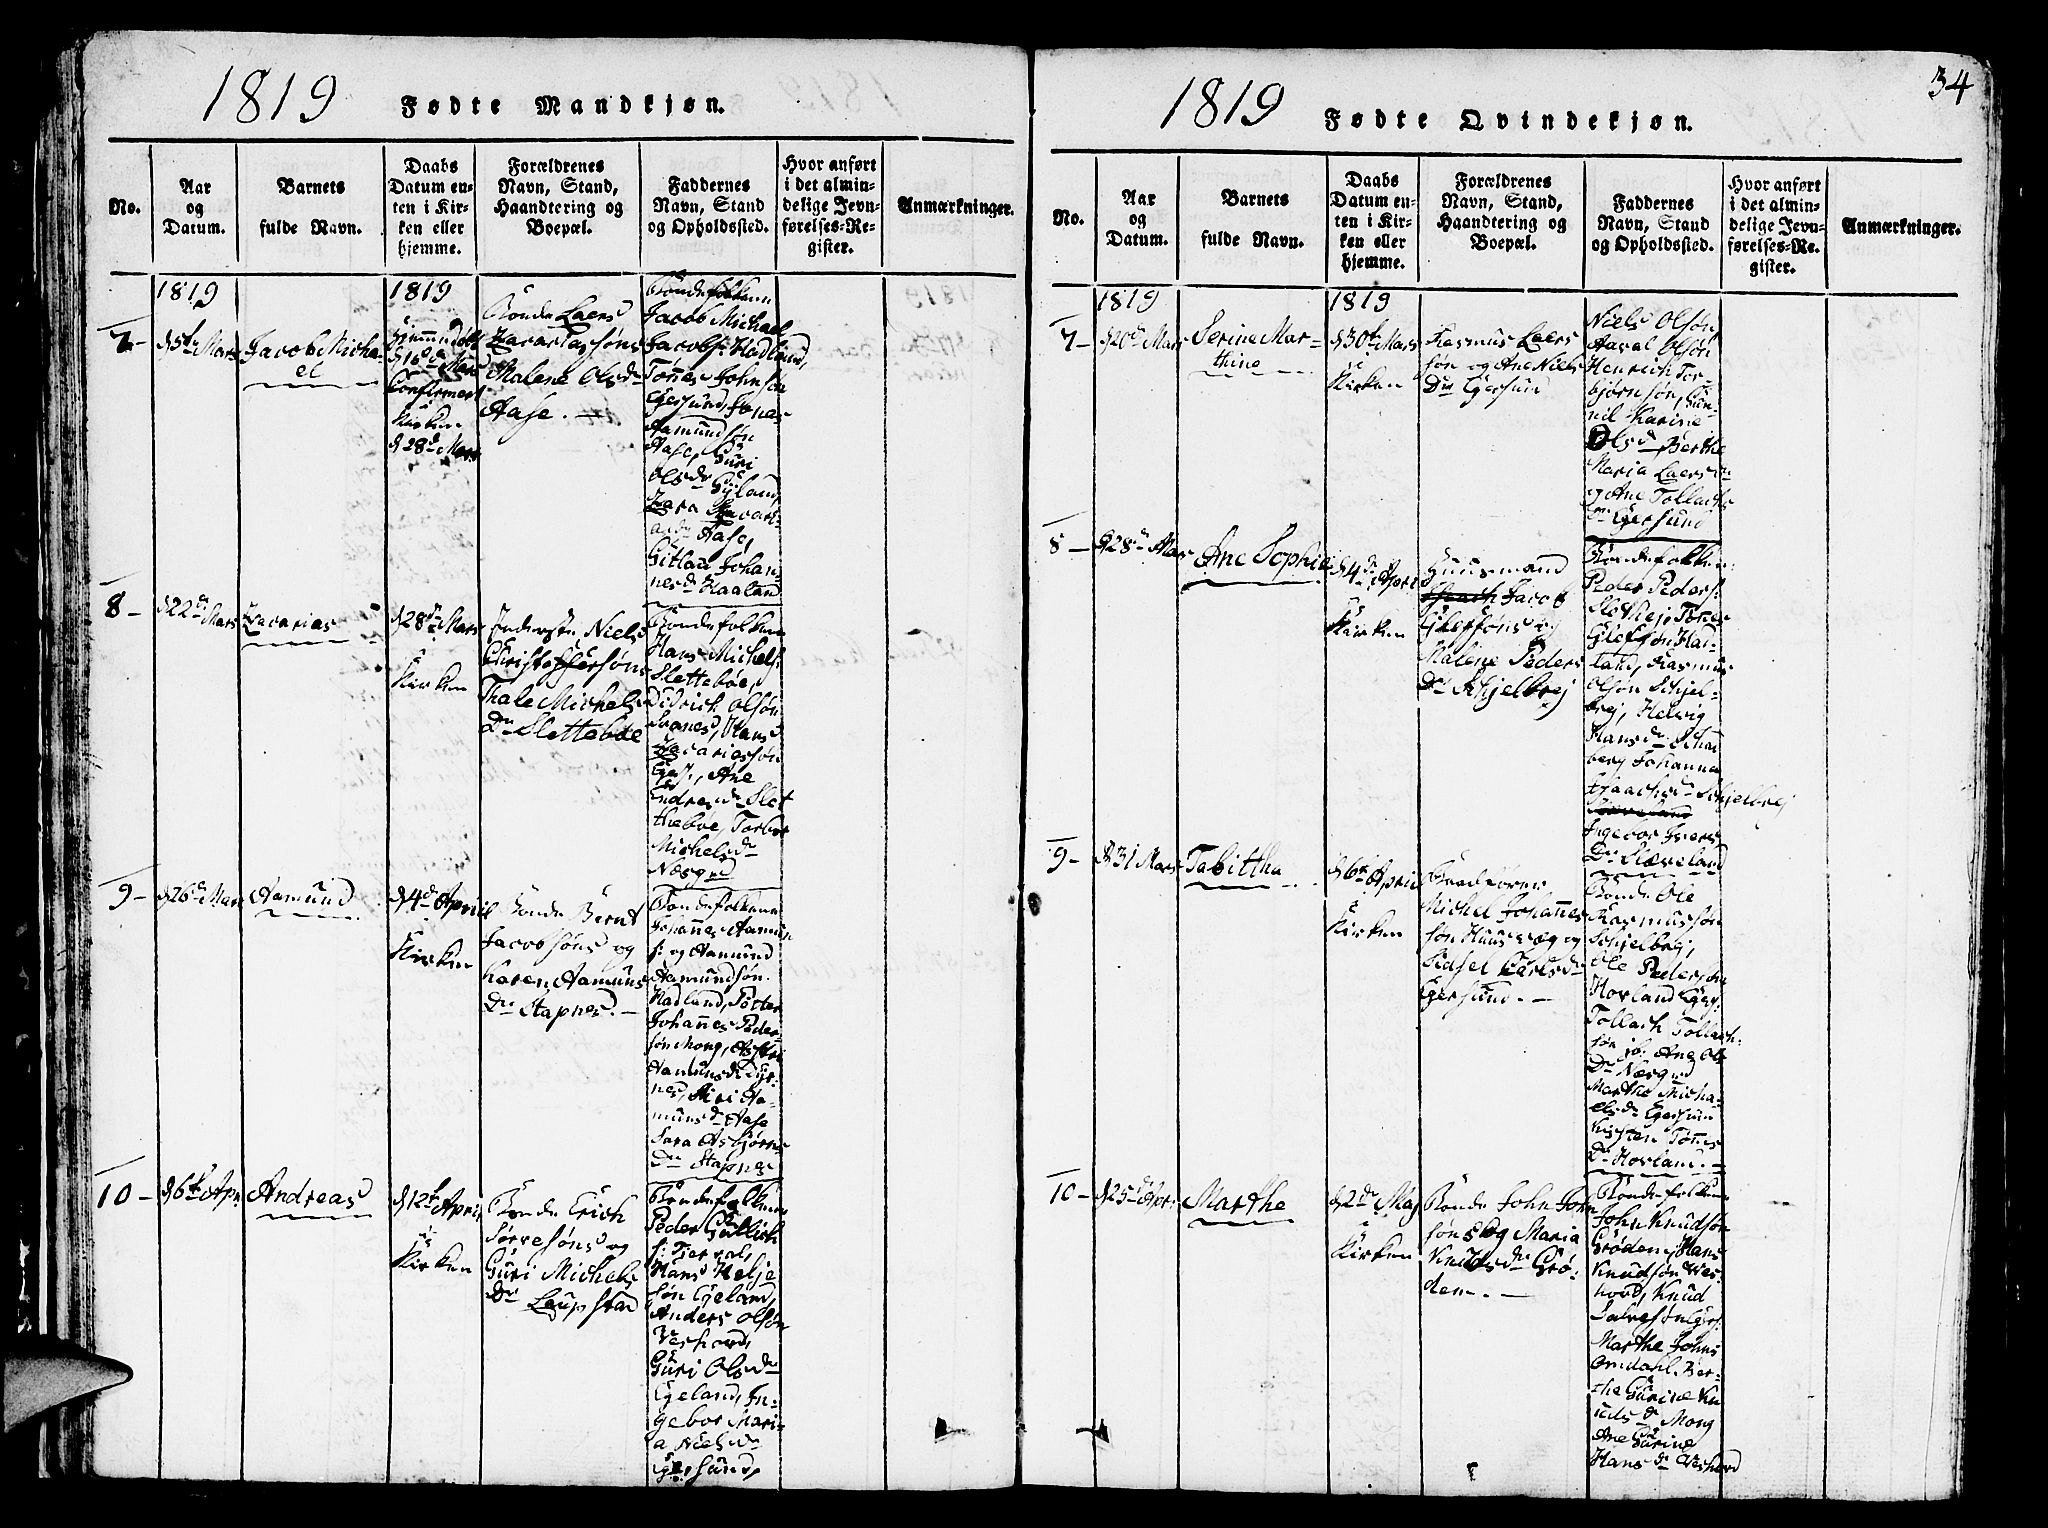 1819 Fødte Mandkjøn.
No.
Aar
og
Datum.
Barnets
fulde Navn.
Daabs
Datum en-
ten i Kir-
ken eller
hjemme.
Forældrenes
Navn, Stand,
Haandtering og
Boepæl.
Faddernes
Navn, Stand
og Opholdssted.
Hvor anført
i det almin-
delige Jevn-
førelses-Re-
gister.
Anmærkninger.
1819
7 -
d 5t Mars
Jacob Micha-
el
1819
Hjemmedøbt
Confirmert
i
Kirken
d 28d Mars
Bonde Laers
Zacariassøns
Malene Olsdr
Aase. -
Bondefolkene
Jacob Michael
Jacobs: Hadland,
Tønes Johnsøn
Egersund, Jonas
Aamundsøn
Aase, Guri
Olsdr Gyland,
Aase,
Gitlau Johan-
nesdr Haaland
8 -
d 22d Mars
Zacarias
d 28d Mars
i
Kirken
Inderste, Niels
Christophersøns
Thale Michels
Dr Slettebøe
Bondefolkene
Hans Michels:
Slettebøe,
Didrich Olsøn
Svanes, Hans
Zacariassøn
Eges:, Ane
Endresdr Slet
thebøe, Torbor
Michelsdr
Næsgrd
9 -
d 26d Mars
Aamund
d 4d April
i
Kirken
Bonde Bernt
Jacobsøns og
Karen Aamuns
Dr Stapnes. -
Bondefolkene
Johannes Aamun
s: og Aamund
Aamundsøn
Hadland, Petter
Johannes Peder-
søn Mong,
Aamunsdr
nes, Siri Aa-
munsdr Aase
Sara Asbjørns
Dr Stapnes
10 -
d 6t Apr:
Andreas
d 12t April
i
Kirken
Bonde Erich
Sørresøns og
Guri Michels
Dr Leupstad
Bondefolkene
Peder Gullich
s: Tjerval,
Hans Helje
søn Egeland,
Anders Olsøn
Veshovd,
Guri Olsdr
Egeland, In-
gebor Mari-
a Nielsdr
Egersund,
34
1819 Fødte Qvindekjøn.
No.
Aar
og
Datum.
Barnets
fulde Navn.
Daabs
Datum en-
ten i Kir-
ken eller
hjemme.
Forældrenes
Navn, Stand,
Haandtering og
Boepæl.
Faddernes
Navn, Stand
og Opholdssted.
Hvor anført
i det almin-
delige Jevn-
førelses-Re-
gister.
Anmærkninger.
1819
7 -
d 20d Mars
Serine Mar-
thine
1819
d 30t Mars
i
Kirken
Rasmus Laers
søn og Ane Niels
Dr Egersund
Niels Olsøn
Aaval Olsøn
Henrich Tor-
bjørnsøn, Gun-
nil Karine
Olsd Berthe
Maria Laersdr
og Ane Tollachs
Dr Egersund
8 -
d 28d Mars
Ane Sophie
d 4d April
i
Kirken
Huusmand
Jacob
og
Malene Peders
Dr Skjelbrej
Bondefolkene
Peder Peders:
Tønes
land, Rasmus
Olsøn Skjel-
brej, Helvig
Hansdr
berg Johanna
Isaachsdr Skjelbrej
Ingebor Ivers
Dr Skæveland
9 -
d 31 Mars
Tabittha
d 6t April
i
Kirken
Michel Johannes
søn Huusvæg og
Carlsdr
Egersund. -
Bonde Ole
Rasmussøn
Skjelbrej,
Ole Pedersøn
Hovland Eger:
Tollach Tollach-
søn ib: Ane Ols
Dr Næsgrd
Marthe Micha-
elsdr Egersund
Kirsten Tønnes
Dr Hovland. -
10 -
d 25d Apr:
Marthe
d 2d Maj
i
Kirken
Bonde John John
søn og Maria
Knudsdr Grø-
dem. -
Bondefolkene
John Knudsøn
Grødem, Hans
Knudsøn Ves-
hovd, Knud
Salvesøn Eges:
Marthe Johns
Omdahl, Ber-
the Gurine Kn
udsdr Mong
Ane Gurine
Hansdr Veshovd